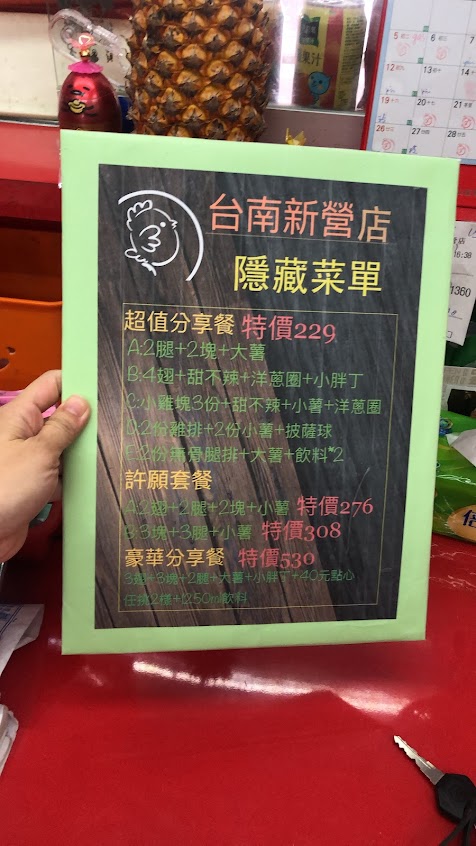 台南新營店
隱藏菜單
超值分享餐 特價229
A:2腿+2塊+大薯
B:4翅+甜不辣+洋蔥圈+小胖丁
C:小雞塊3份+甜不辣+小薯+洋蔥圈
D:2份雞排+2份小薯+披薩球
E:2份無骨腿排+大薯+飲料*2
許願套餐
A:2翅+2腿+2塊+小薯 特價276
B:3塊+3腿+小薯 特價308
豪華分享餐 特價530
3翅+3塊+2腿+大薯+小胖丁+40元點心
任挑2樣+1250ml飲料